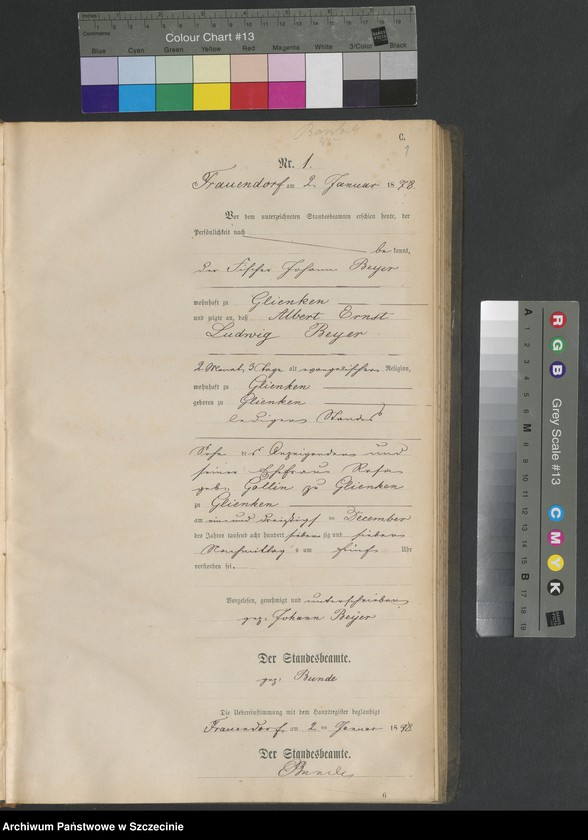 Centimetres
Colour Chart #13
Blue Cyan Green Yellow Red Magenta White 3/Color Black
C.
1
Nr. 1.
Frauendorf am 2. Januar 1878.
Vor dem unterzeichneten Standesbeamten erschien heute, der
Persönlichkeit nach
be kannt,
der Fischer Johann Beyer
wohnhaft zu Glienken
und zeigte an, daß Albert Ernst
Ludwig Beyer
2 Monat, 3 Tage alt evangelischer Religion,
wohnhaft zu Glienken
geboren zu Glienken
ledigen Standes
Sohn des Anzeigenden und
seiner Ehefrau Rosa
geb. Gollin zu Glienken
zu Glienken
am ein und dreißigst en December
des Jahres tausend acht hundert sieben zig und sieben
Nachmittag s um fünf Uhr
verstorben sei.
Vorgelesen, genehmigt und unterschrieben
gez. Johann Beyer
Der Standesbeamte.
gez. Bunde
Die Uebereinstimmung mit dem Hauptregister beglaubigt
Frauendorf am 2 ten Januar 1878.
Der Standesbeamte.
Bunde
6
Grey Scale #13
R G B C M Y K
A 1 2 3 4 5 6 M 8 9 10 11 12 13 14 15 B 17 18 19
Archiwum Państwowe w Szczecinie